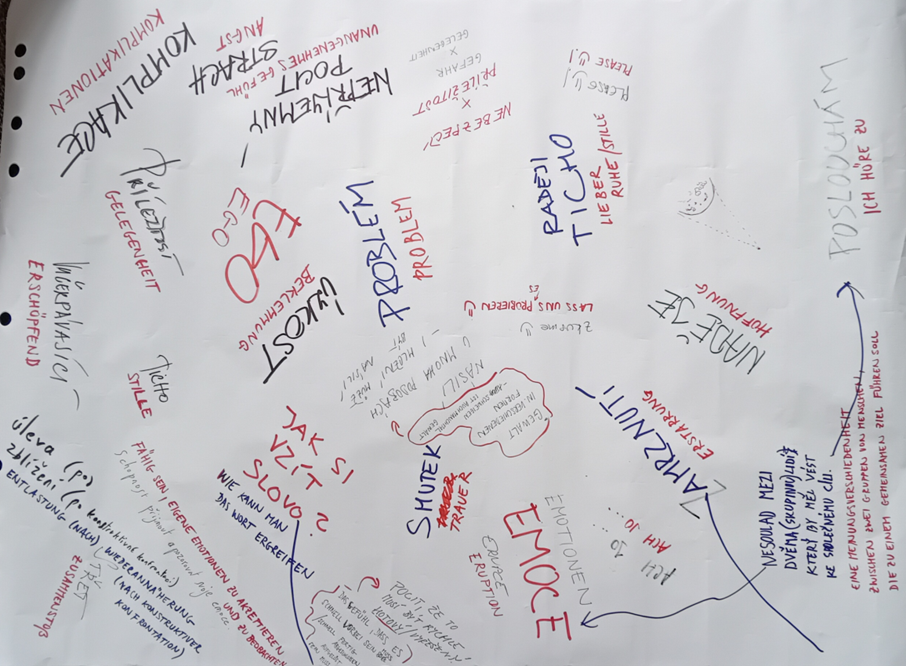 KOMPLIKATIONEN
KOMPLIKACE
ANGST
STRACH
UNANGENEHMES GEFÜHL
NEPŘÍJEMNÝ
POCIT
GELEGENHEIT
X
GEFAHR
PŘÍLEŽITOST
X
NEBEZPEČÍ
PLEASE!
PLEASE!
RADĚJI
TICHO
LIEBER
RUHE/STILLE
POSLOUCHÁM
ICH HÖRE ZU
PŘÍLEŽITOST
GELEGENHEIT
EGO
EGO
PROBLÉM
PROBLEM
VYČERPÁVAJÍCÍ
ERSCHÖPFEND
BEKLEMMUNG
ÚZKOST
LASS UNS ES PROBIEREN
ZKUSME
HOFFNUNG
NADĚJE
TICHO
STILLE
NÁSILÍ
V MNOHA PODOBÁCH
I MLČENÍ MŮŽE
BÝT NÁSILÍ
GEWALT
IN VERSCHIEDENEN
FORMEN
JAK SI
VZÍT
SLOVO?
WIE KANN MAN
DAS WORT ERGREIFEN
SMUTEK
TRAUER
ZAMRZNUTÍ
ERSTARRUNG
ACH JO...
ACH JO
EMOTIONEN
EMOCE
ERUPCE
ERUPTION
NESOULAD MEZI
DVĚMA (SKUPINAMI) LIDÍ
KTERÝ BY MĚL VÉST
KE SPOLEČNÉMU CÍLI.
EINE MEINUNGSVERSCHIEDENHEIT
ZWISCHEN ZWEI GRUPPEN VON MENSCHEN,
DIE ZU EINEM GEMEINSAMEN ZIEL FÜHREN SOLL
úleva (po)
zblížení (po konstruktivní konfrontaci)
ENTLASTUNG (NACH) WIEDERANNÄHERUNG
(NACH KONSTRUKTIVER
KONFRONTATION)
STŘET
ZUSAMMENSTOß
FÄHIG SEIN, EIGENE EMOTIONEN ZU AKZEPTIEREN
UND ZU BEOBACHTEN
Schopnost přijmout a pozorovat moje emoce
POCIT ŽE TO
MOHL BÝT RYCHLE
DAS GEFÜHL, DASS ES